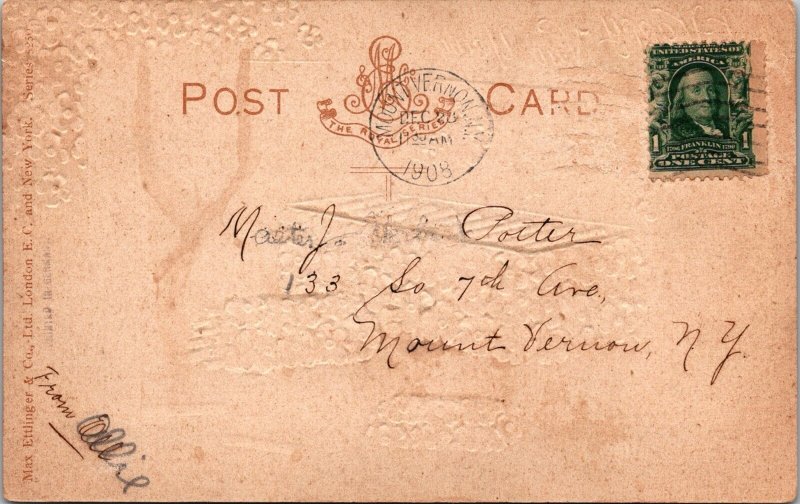 POST CARD
THE ROYAL SERIES
MOUNT VERNON, N.Y.
DEC 2
AM
1908
UNITED STATES OF
AMERICA
1 1
1706 FRANKLIN 1790
POSTAGE
ONE CENT
J. Porter
133 So 7th Ave,
Mount Vernon, N.Y.
From Ollie
Max Ettlinger & Co., Ltd. London E. C. and New York. Serie